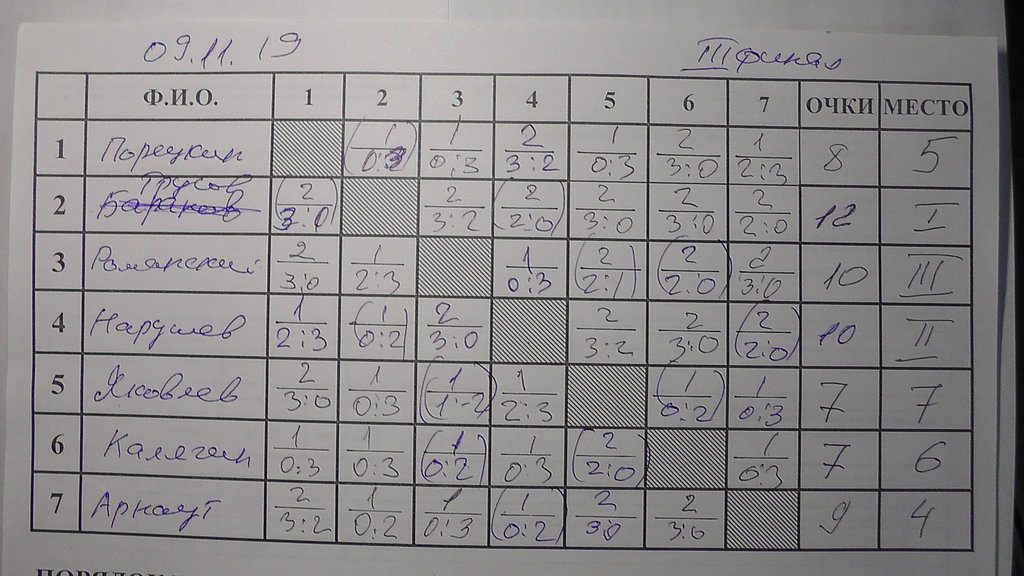 09.11.19 III финал
Ф.И.О. 1 2 3 4 5 6 7 ОЧКИ МЕСТО
1 Порецкин (1 0:3) 1 0:3 2 3:2 1 0:3 2 3:0 1 2:3 8 5
2 Трусов (2 3:0) 2 3:2 (2 2:0) 2 3:0 2 3:0 2 2:0 12 I
3 Романский 2 3:0 1 2:3 1 0:3 (2 2:1) (2 2:0) 2 3:0 10 III
4 Нарушев 1 2:3 (1 0:2) 2 3:0 2 3:2 2 3:0 (2 2:0) 10 II
5 Яковлев 2 3:0 1 0:3 (1 1:2) 1 2:3 (1 0:2) 1 0:3 7 7
6 Калягин 1 0:3 1 0:3 (1 0:2) 1 0:3 (2 2:0) 1 0:3 7 6
7 Арнаут 2 3:2 1 0:2 1 0:3 (1 0:2) 2 3:0 2 3:0 9 4